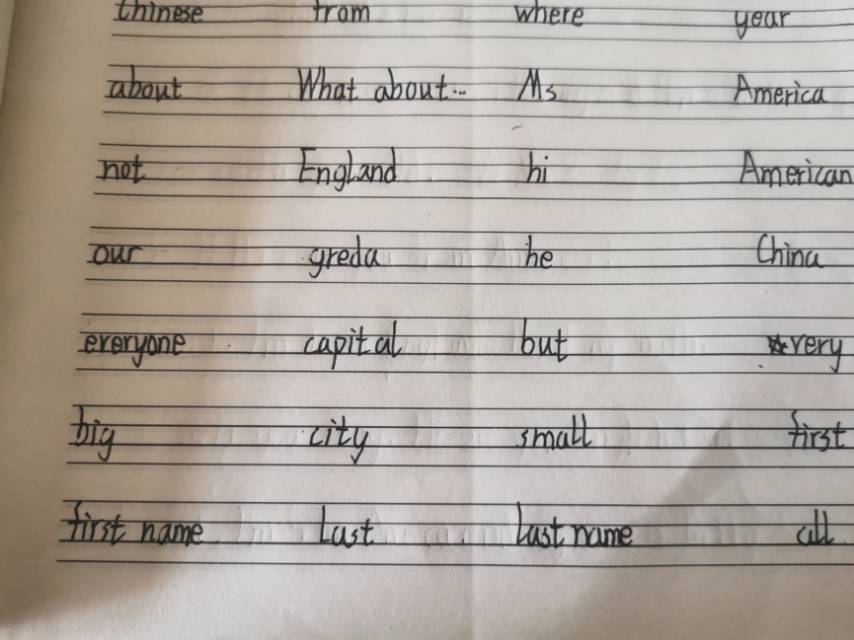 chinese from where year
about What about... Ms America
not England hi American
our greda he China
everyone capital but very
big city small first
first name Last Last name all